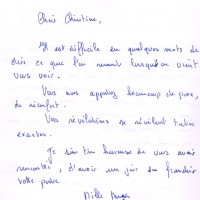 Chère Christine,
Il est difficile en quelques mots de
dire ce que l'on ressent lorsqu'on vient
vous voir.
Vous nous apportez beaucoup de paix,
de réconfort.
Vos révélations se révèlent toutes
exactes.
Je suis très heureuse de vous avoir
rencontré, et avoir un jour du franchir
votre porte
Mille